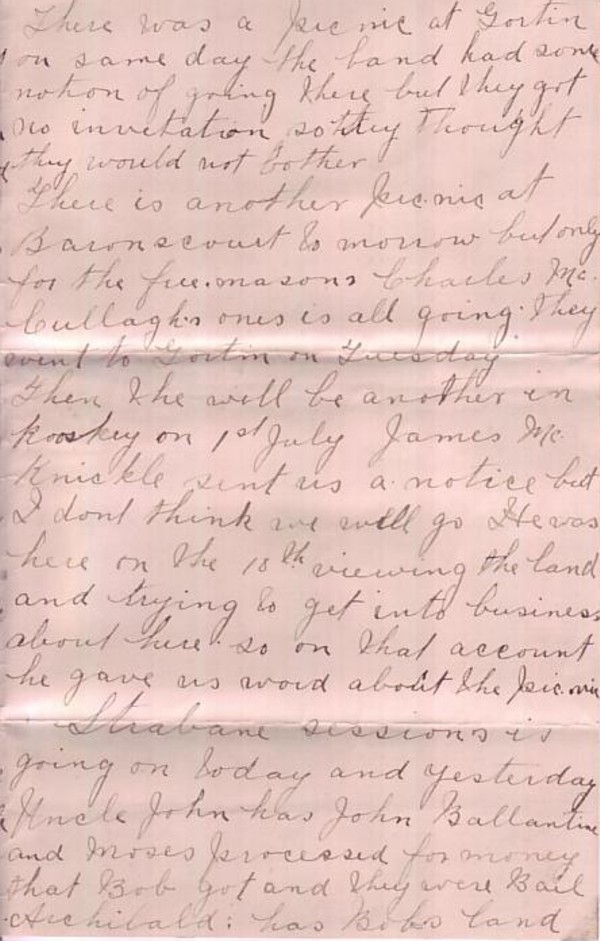 There was a picnic at Gortin
on same day the band had some
notion of going there but they got
no invitation so they thought
they would not bother
There is another picnic at
Baronscourt to morrow but only
for the free.masons Charles Mc.
Cullagh's ones is all going. They
went to Gortin on Tuesday
Then the will be another in
Rooskey on 1st July James Mc.
Knickle sent us a notice but
I dont think we will go He was
here on the 18th viewing the land
and trying to get into business
about here. so on that account
he gave us word about the picnic
Strabane sessions is
going on today and yesterday
Uncle John has John Ballantine
and Moses processed for money
that Bob got and they were Bail
Archibald: has Bobs land